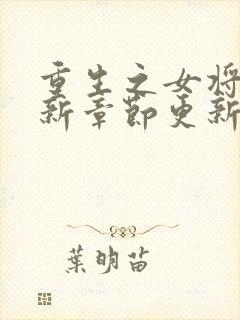 重生之女将
新章节更新
葉明苗